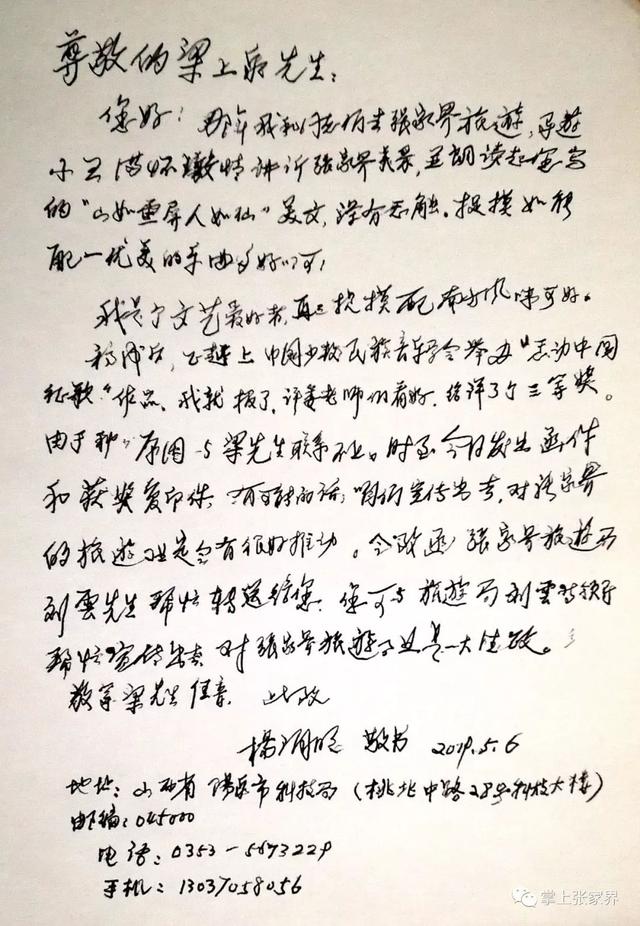 尊敬的梁上泉先生:
您好!那年我和    去张家界旅游,导游
小    满怀激情讲述张家界美景,并朗读起您写
的"山如画屏人如仙"美文,深有感触。捉摸如能
配一优美的乐曲多好    !
我是个文艺爱好者,再三捉摸配南方风味可好。
稿成后,正赶上中国少数民族音乐学会举办"    动中国
征歌"作品,我就报了,评委老师们看好,给评了个三等奖。
由于种    原因    与梁先生联系不上。时至今日发出函件
和获奖复印件,    的话,咱们宣传出去,对张家界
的旅游业定会有很好推动。今致函张家界旅游局
刘云先生帮忙转送给您,您可与旅游局刘云    领导
帮忙宣传出去,对张家界旅游事业是一大    。
敬等梁先生佳音。 此致
楊    敬书 2019.5.6
地址:山西省阳泉市科技局(桃北中路28号科技大楼)
邮编:045000
电话:0353-5673229
手机:13037058056
掌上张家界